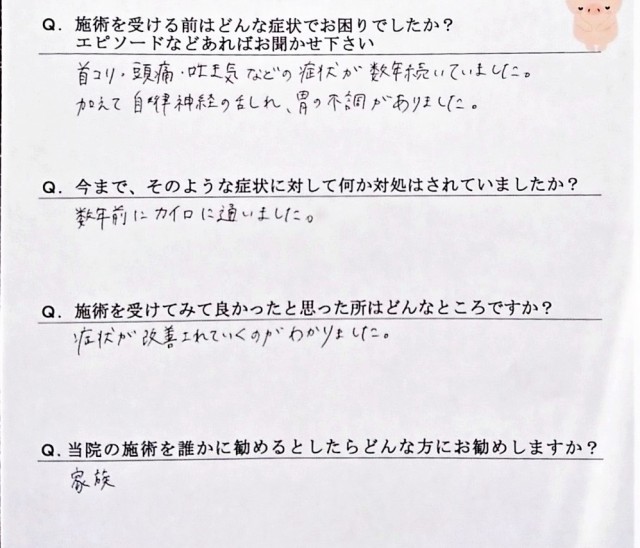 Q. 施術を受ける前はどんな症状でお困りでしたか？
エピソードなどあればお聞かせ下さい
首コリ・頭痛・吐き気などの症状が数年続いていました。
加えて自律神経の乱れ、胃の不調がありました。
Q. 今まで、そのような症状に対して何か対処はされていましたか？
数年前にカイロに通いました。
Q. 施術を受けてみて良かったと思った所はどんなところですか？
症状が改善されていくのがわかりました。
Q. 当院の施術を誰かに勧めるとしたらどんな方にお勧めしますか？
家族